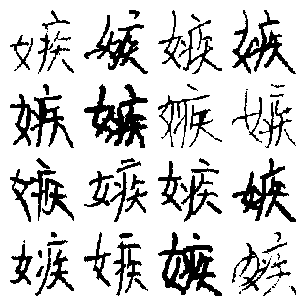 嫉嫉嫉嫉
嫉嫉嫉嫉
嫉嫉嫉嫉
嫉嫉嫉嫉